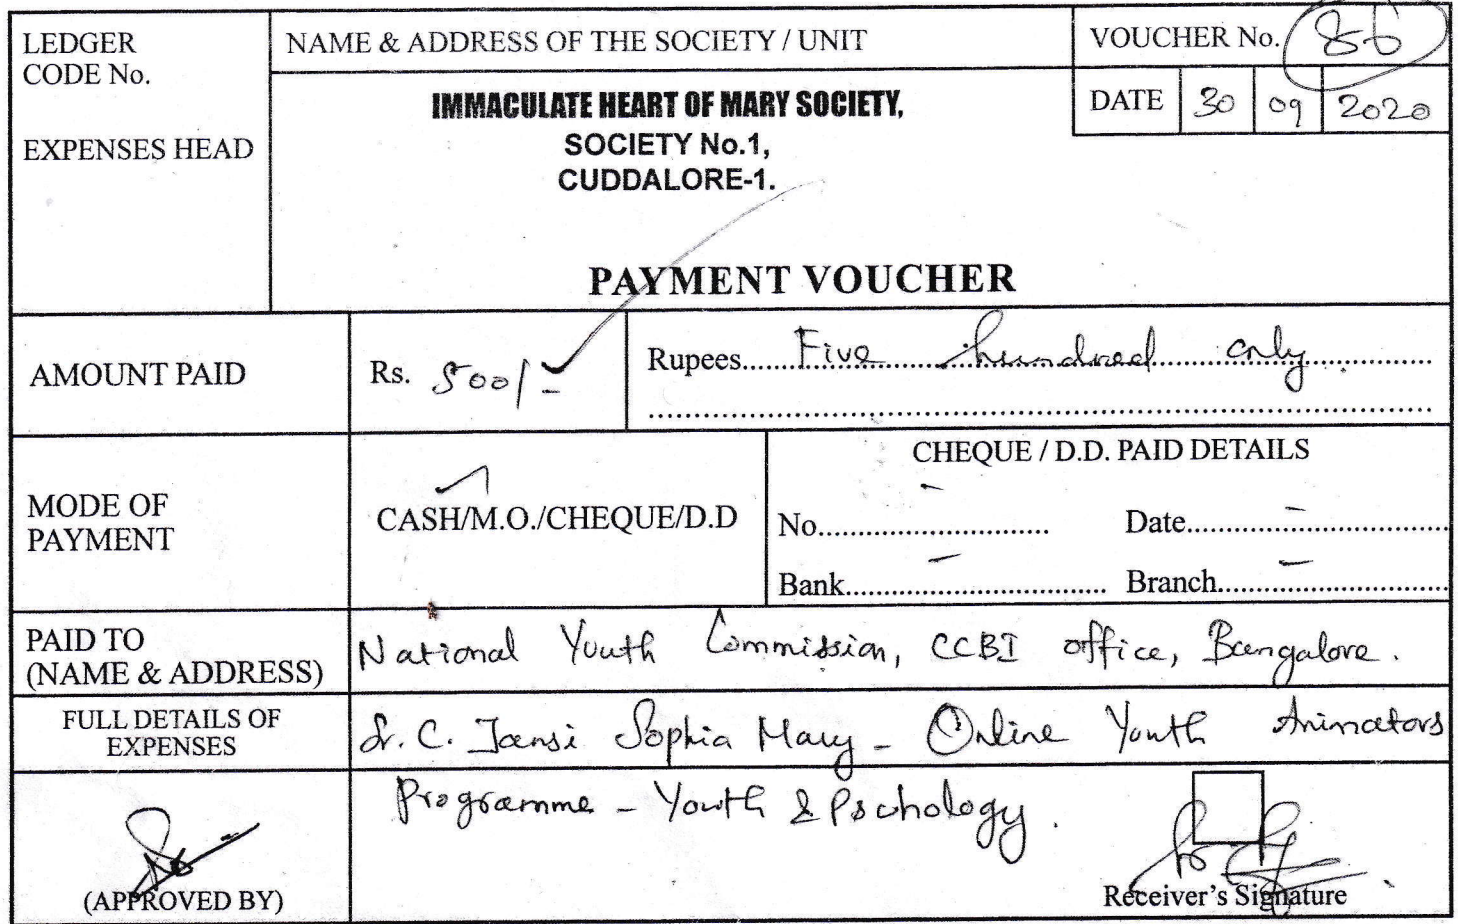 LEDGER CODE No.
EXPENSES HEAD
NAME & ADDRESS OF THE SOCIETY / UNIT
VOUCHER No. 86
DATE 30 09 2020
IMMACULATE HEART OF MARY SOCIETY,
SOCIETY No.1,
CUDDALORE-1.
PAYMENT VOUCHER
AMOUNT PAID
Rs. 500/-
Rupees Five hundred only
MODE OF PAYMENT
CASH/M.O./CHEQUE/D.D
CHEQUE / D.D. PAID DETAILS
No. - Date -
Bank - Branch -
PAID TO
(NAME & ADDRESS)
National Youth Commission, CCBI office, Bangalore.
FULL DETAILS OF EXPENSES
Sr. C. Jansi Sophia Mary - Online Youth Animators
Programme - Youth & Pschology.
(APPROVED BY)
Receiver's Signature